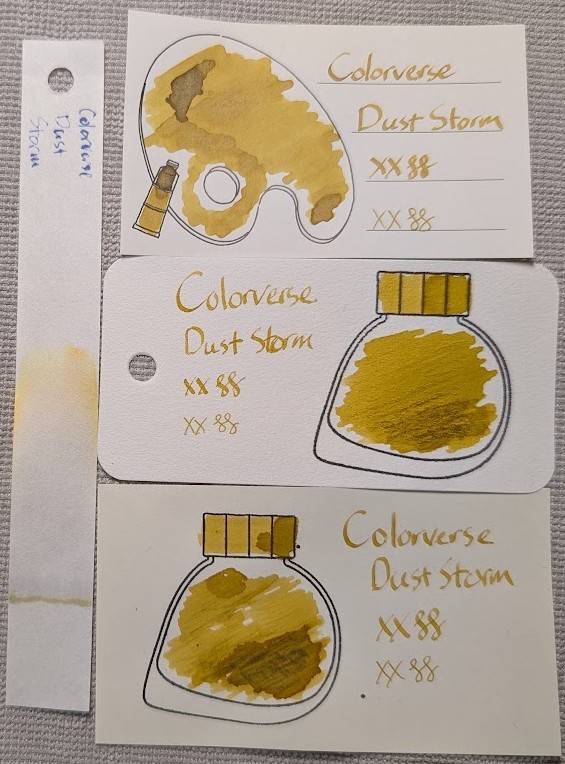 Colorverse
Dust
Storm
Colorverse
Dust Storm
XX 88
XX 88
Colorverse
Dust Storm
XX 88
XX 88
Colorverse
Dust Storm
XX 88
XX 88